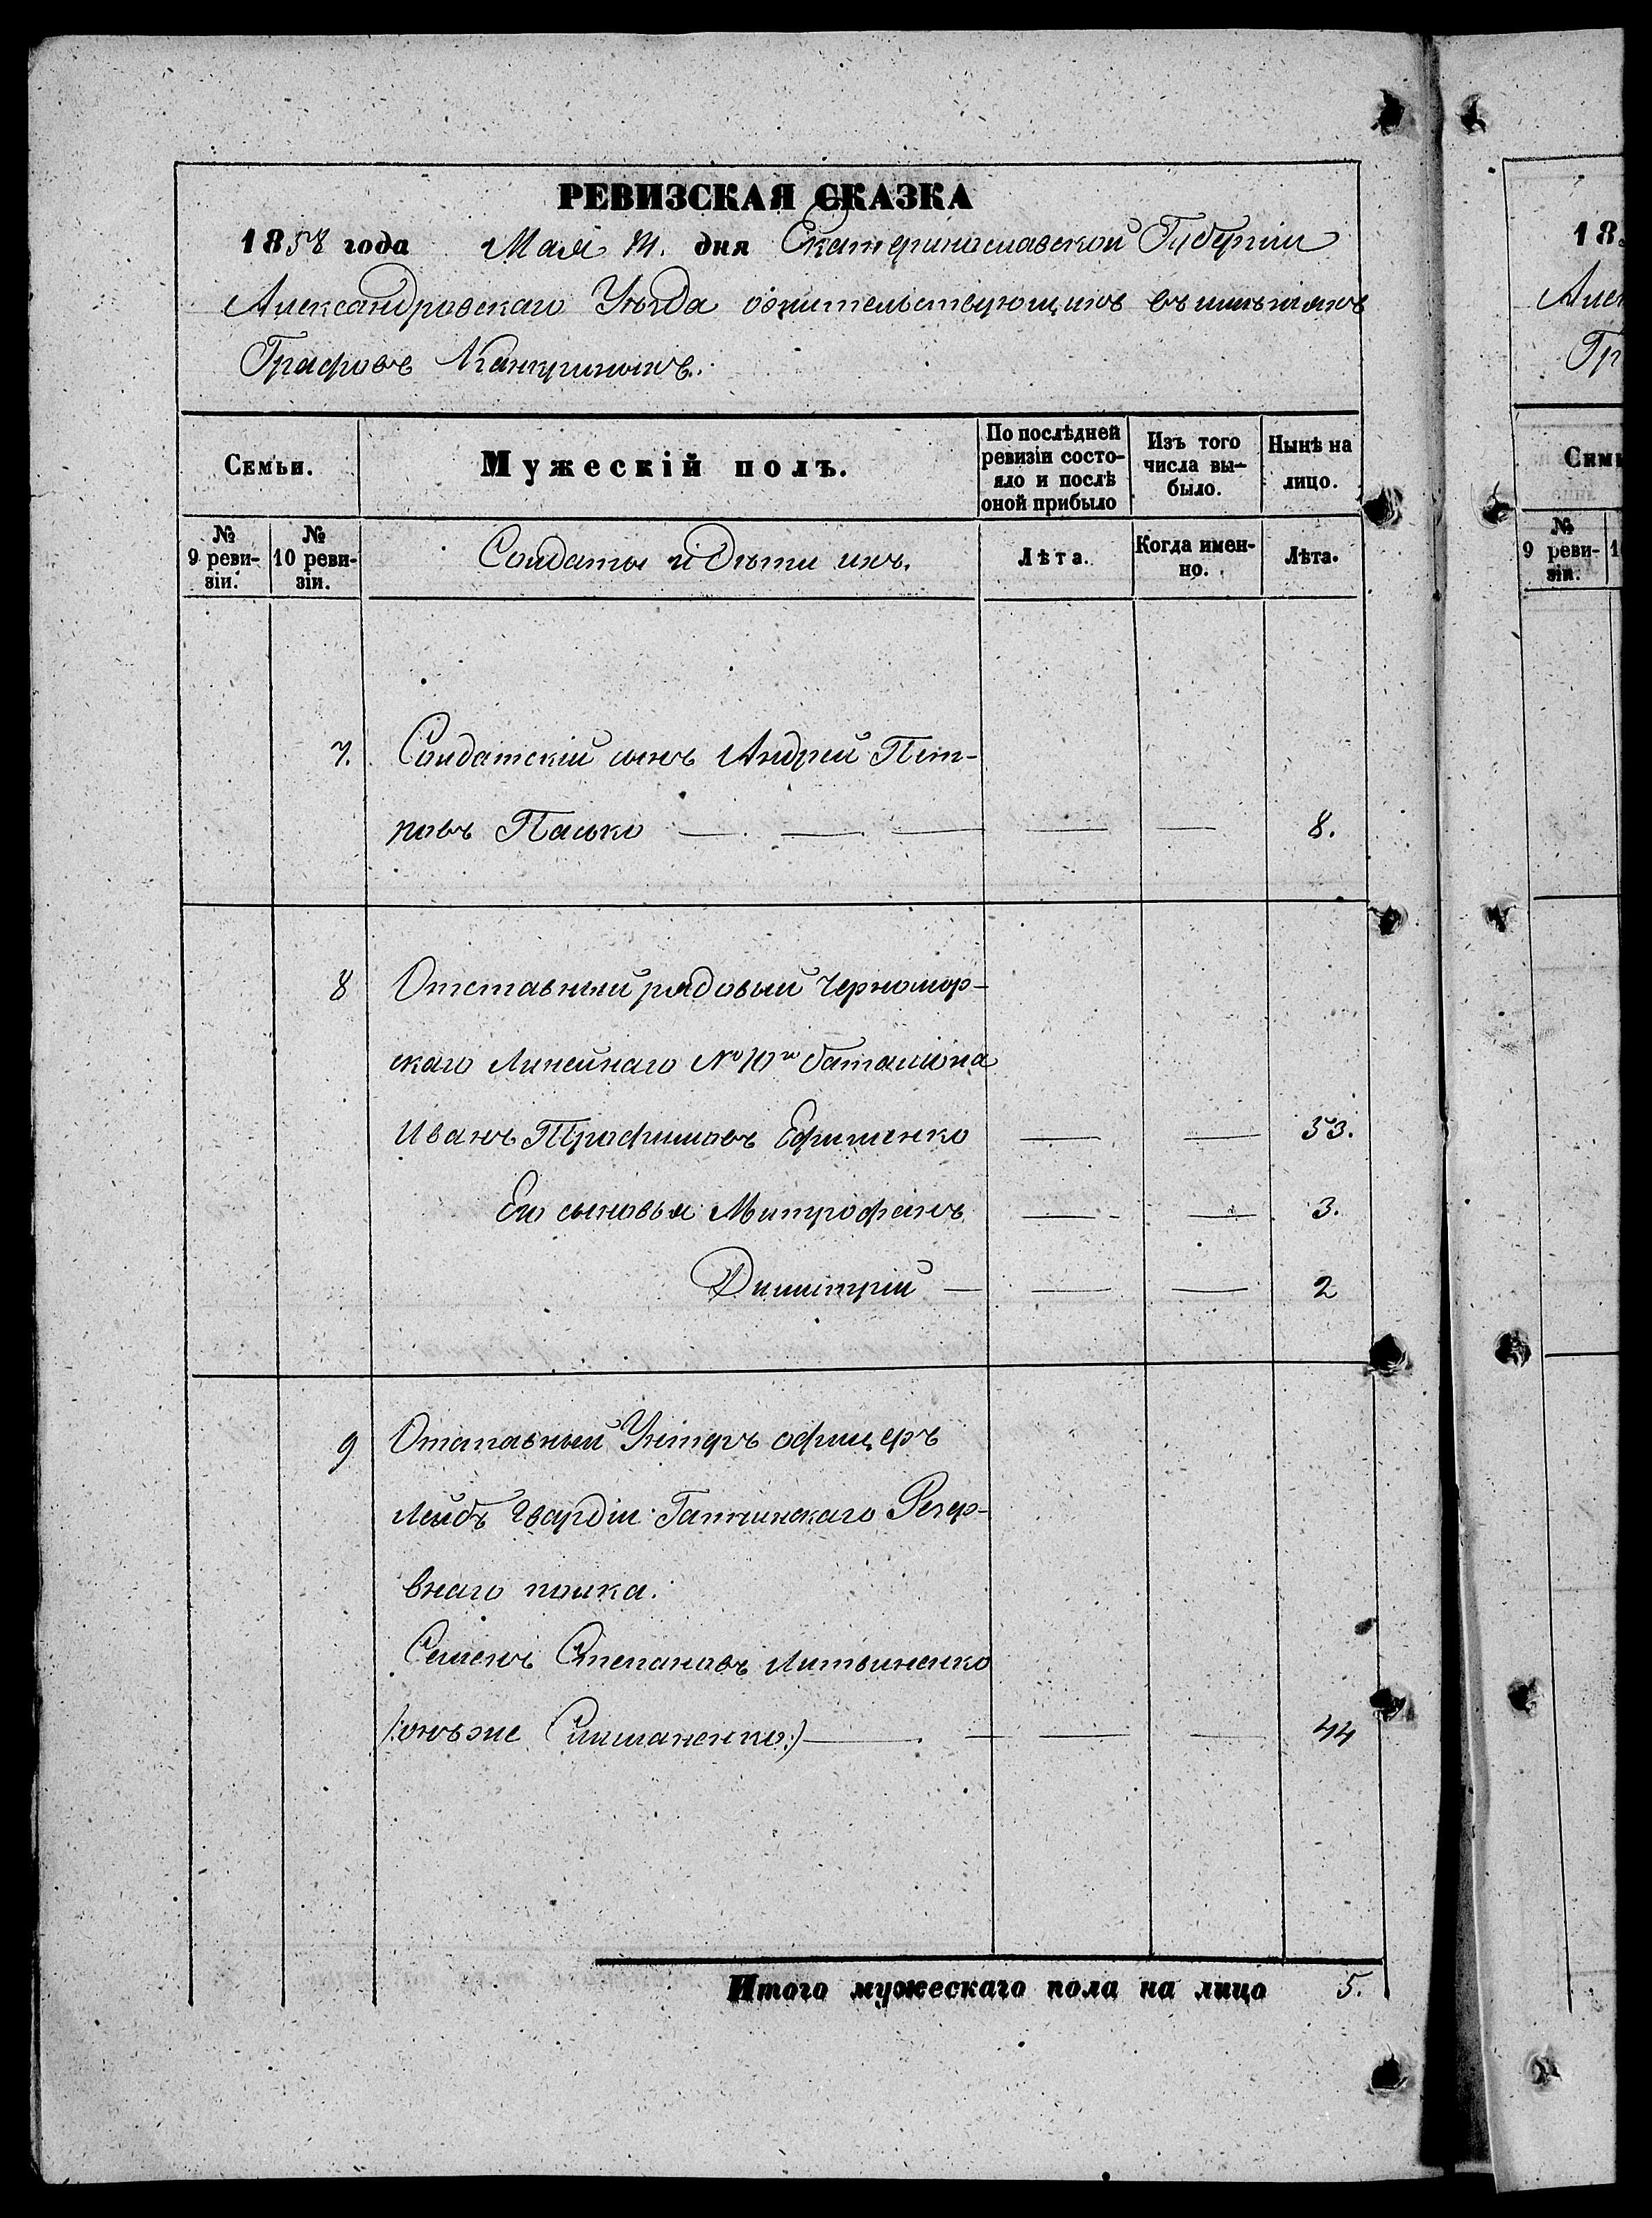 РЕВИЗСКАЯ СКАЗКА
1858 года Мая дня Екатеринославской Губерніи
Александровскаго Уѣзда обжительствующихъ въ имѣніяхъ
Графовъ Канкриныхъ.
Семьи.
Мужескій полъ.
По послѣдней ревизіи состо-
яло и послѣ оной прибыло
Изъ того числа вы-
было.
Нынѣ на лицо.
№ 9 реви-
зіи.
№ 10 реви-
зіи.
Солдаты и Дѣти ихъ.
Лѣта.
Когда имен-
но.
Лѣта.
7. Солдатскій сынъ Андрей Пет-
ровъ Пасько — — — — — 8.
8 Отставный рядовый Черномор-
скаго Линейнаго № 10го баталіона
Иванъ Трофимовъ Ефименко — — 53.
Его сыновья Митрофанъ — — 3.
Димитрій — — — 2
9 Отставный Унтеръ офицеръ
Лейбъ Гвардіи Гатчинскаго Резер-
внаго полка.
Семенъ Степановъ Литвиненко
(:онъ же Симаненко:) — — — — 44
Итого мужескаго пола на лицо 5.
18
Алек
Гр
Семь
№ 9 реви-
зіи.